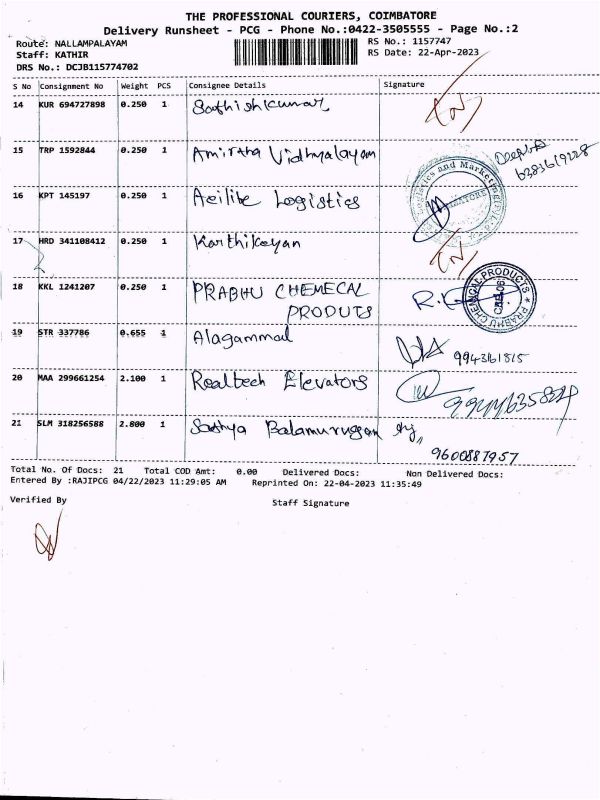 THE PROFESSIONAL COURIERS, COIMBATORE
Delivery Runsheet - PCG - Phone No.:0422-3505555 - Page No.:2
Route: NALLAMPALAYAM
RS No.: 1157747
Staff: KATHIR
RS Date: 22-Apr-2023
DRS No.: DCJB115774702
S No Consignment No Weight PCS Consignee Details Signature
14 KUR 694727898 0.250 1 Sathishkumar
15 TRP 1592844 0.250 1 Amirtha Vidhyalayam
6383619228
16 KPT 145197 0.250 1 Acilibe Logistics
Logistics and Marketing
17 HRD 341108412 0.250 1 Karthikeyan
18 KKL 1241207 0.250 1 PRABHU CHEMECAL
PRODUTS
PRABHU CHEMICAL PRODUCTS
19 STR 337786 0.655 1 Alagammal
994361815
20 MAA 299661254 2.100 1 Realtech Elevators
21 SLM 318256588 2.800 1 Sathya Balamurugan
9600887957
Total No. Of Docs: 21 Total COD Amt: 0.00 Delivered Docs: Non Delivered Docs:
Entered By :RAJIPCG 04/22/2023 11:29:05 AM Reprinted On: 22-04-2023 11:35:49
Verified By Staff Signature